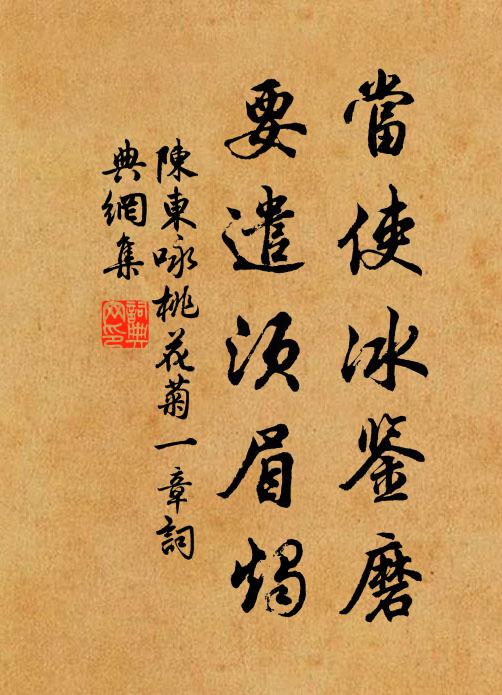 當使冰鉴磨
要遣須眉燭
陳東咏桃花菊一章詞
典網集
詞典